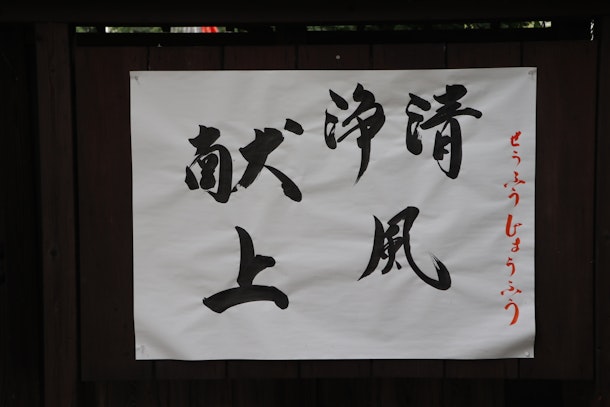 せうふう じょうふう
清浄
風
献上